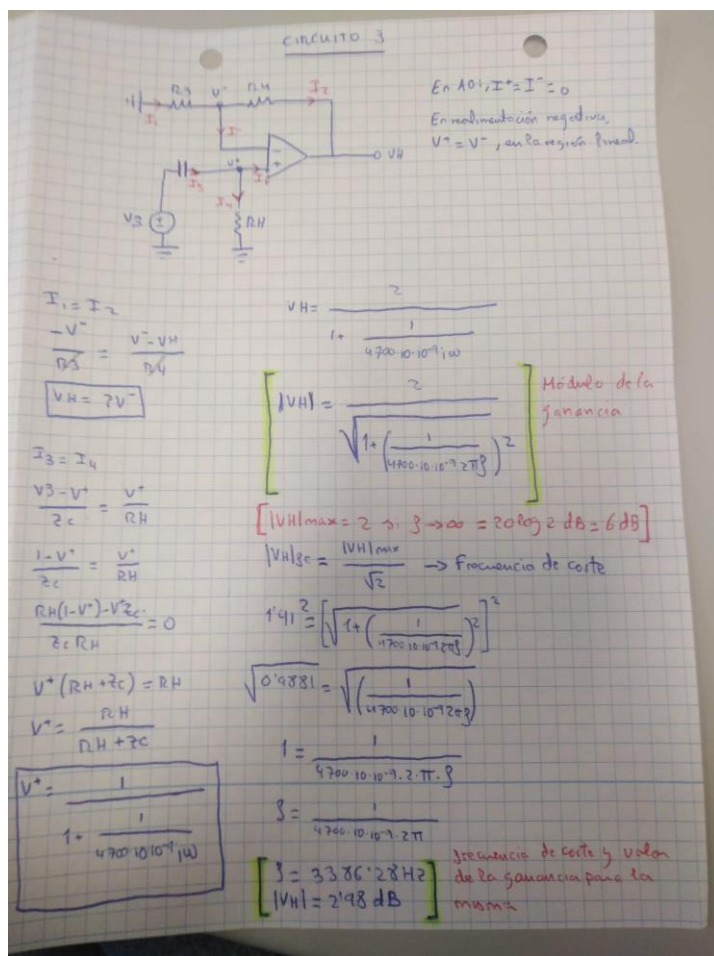 CIRCUITO 3
R3 V⁻ R4 I2
I1 I⁻
V⁺ I3 I⁺ I4
VH
V3
RH
En AOi, I⁺ = I⁻ = 0
En realimentación negativa,
V⁺ = V⁻, en la región lineal.
I1 = I2
-V⁻/R3 = (V⁻ - VH)/R4
VH = 2V⁻
I3 = I4
(V3 - V⁺)/Zc = V⁺/RH
(1 - V⁺)/Zc = V⁺/RH
(RH(1-V⁺) - V⁺Zc)/(Zc RH) = 0
V⁺(RH + Zc) = RH
V⁺ = RH/(RH + Zc)
V⁺ = 1/(1 + 1/(4700·10·10⁻⁹ jω))
VH = 2/(1 + 1/(4700·10·10⁻⁹ jω))
|VH| = 2/√(1 + (1/(4700·10·10⁻⁹·2πf))²)
Módulo de la
ganancia
[|VH|max = 2 si f → ∞ = 20log 2 dB = 6 dB]
|VH|fc = |VH|max/√2 → Frecuencia de corte
1'41² = [√(1 + (1/(4700·10·10⁻⁹2πf))²)]²
√0'9881 = √(1/(4700·10·10⁻⁹2πf))²
1 = 1/(4700·10·10⁻⁹·2·π·f)
f = 1/(4700·10·10⁻⁹·2π)
f = 3386'28 Hz
|VH| = 2'98 dB
frecuencia de corte y valor
de la ganancia para la
misma